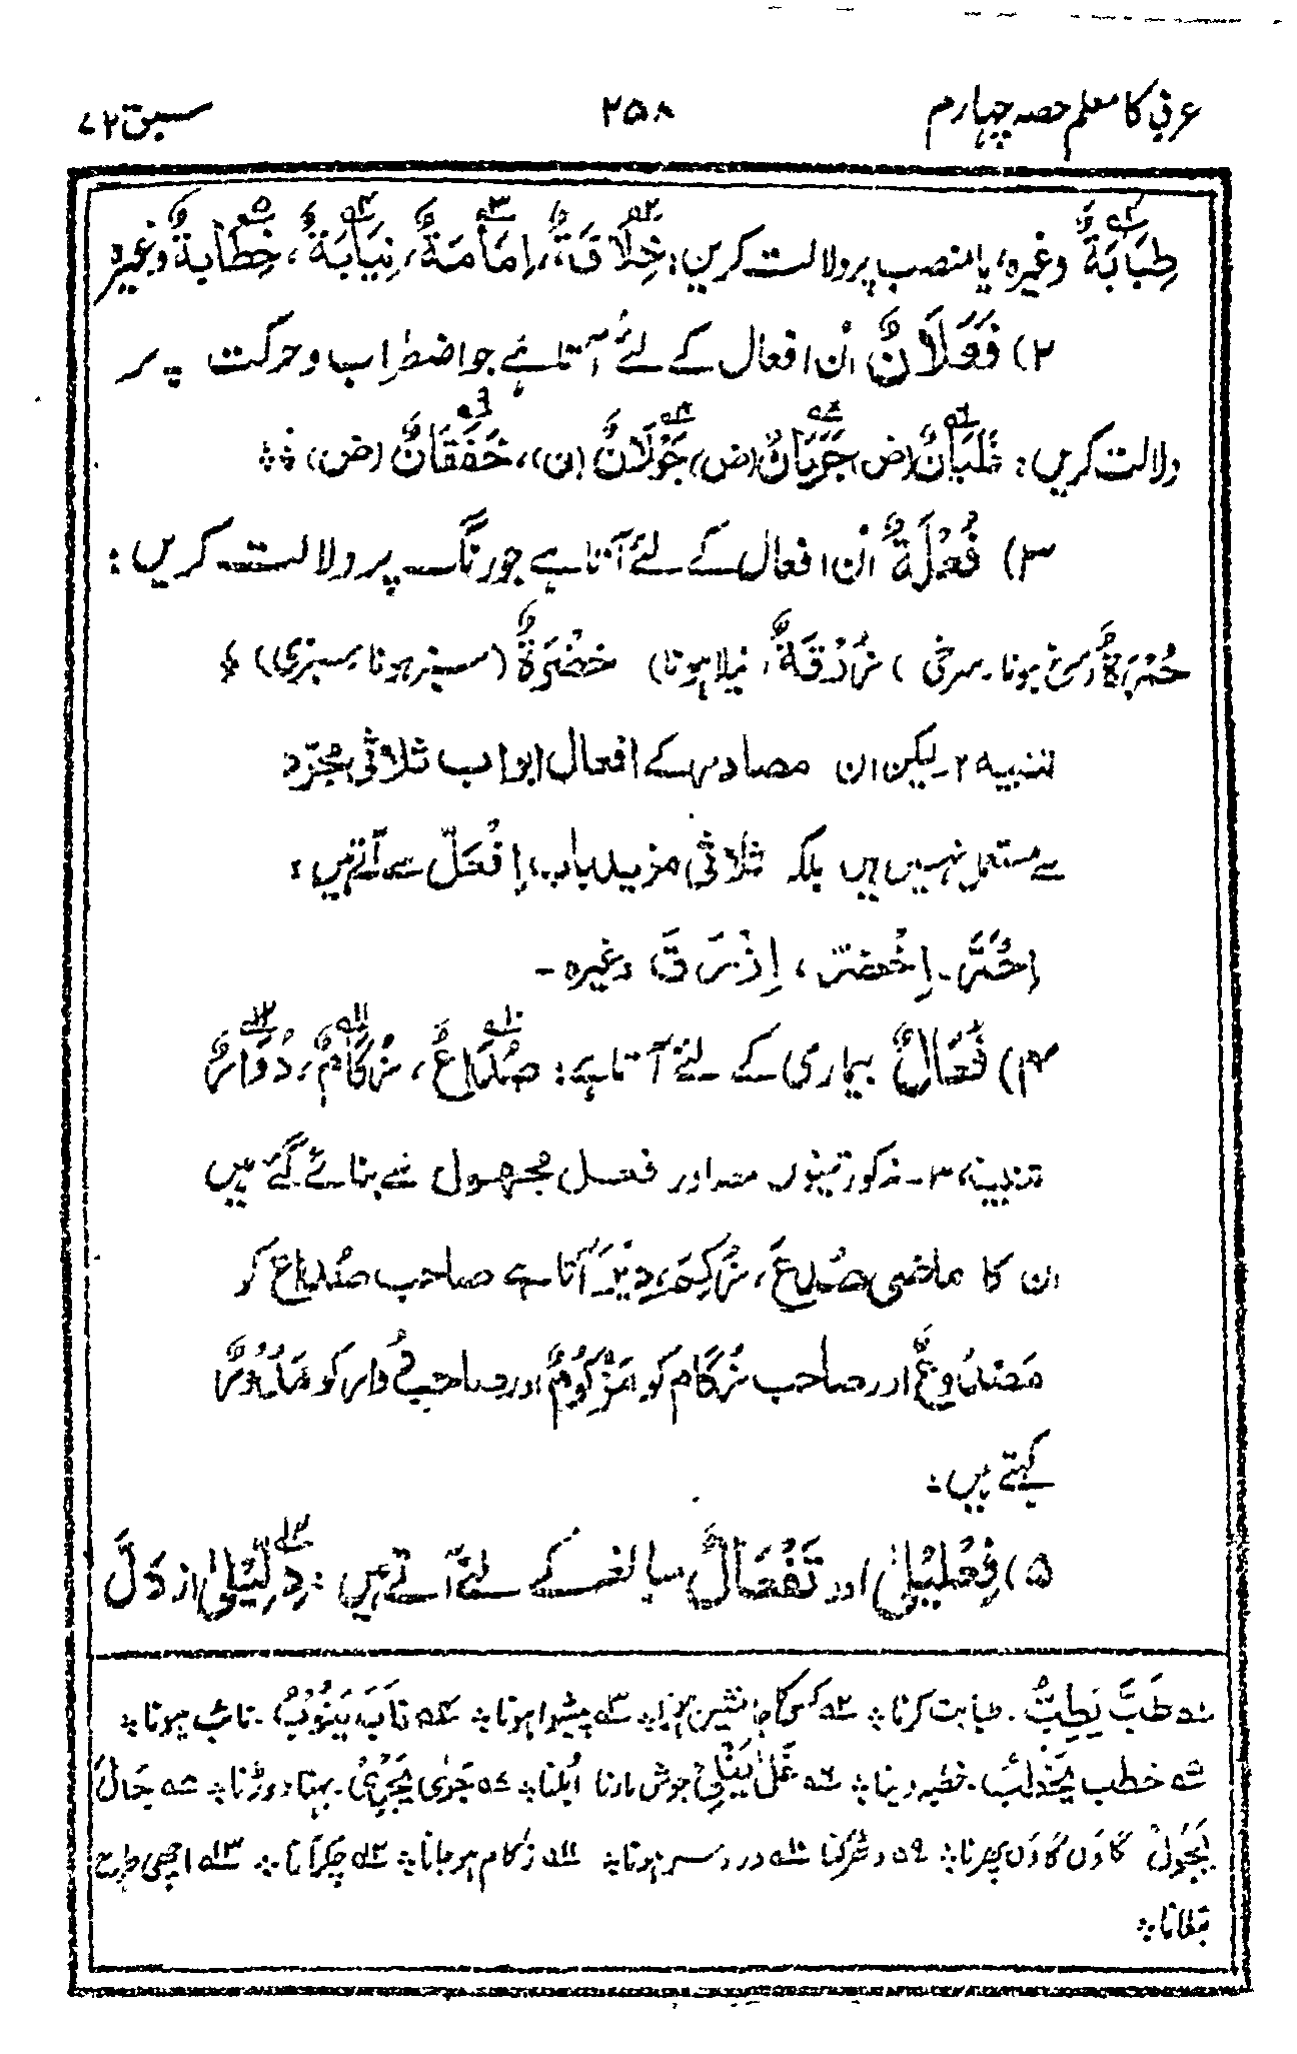 عربی کا معلم حصہ چہارم ۲۵۸ سبق ۷۲
طِبَابَةٌ۱ وغیرہ، یا منصب پر دلالت کریں: خِلَافَةٌ۲، اِمَامَةٌ۳، نِیَابَةٌ۴، خِطَابَةٌ۵ وغیرہ
۲) فَعَلَانٌ اُن افعال کے لئے آتا ہے جو اضطراب و حرکت پر
دلالت کریں: غَلَیَانٌ۶ (ض) جَرَیَانٌ۷ (ض) جَوَلَانٌ۸ (ن)، خَفَقَانٌ۹ (ض) ؞
۳) فُعْلَةٌ اُن افعال کے لئے آتا ہے جو رنگ پر دلالت کریں:
حُمْرَةٌ (سرخ ہونا۔ سرخی) زُرْقَةٌ، نیلا ہونا) خُضْرَةٌ (سبز ہونا۔ سبزی) ؞
تنبیہ ۲۔ لیکن ان مصادر کے افعال ابواب ثلاثی مجرّد
سے مستعمل نہیں ہیں بلکہ ثلاثی مزید باب اِفْعَلَّ سے آتے ہیں:
اِحْمَرَّ۔ اِخْضَرَّ، اِزْرَقَّ وغیرہ۔
۴) فُعَالٌ بیماری کے لئے آتا ہے: صُدَاعٌ۱۰، زُکَامٌ۱۱، دُوَارٌ۱۲
تنبیہ ۳۔ مذکور تینوں مصادر فعل مجھول سے بنائے گئے ہیں
ان کا ماضی صُدِعَ، زُکِمَ، دِیْرَ آتا ہے صاحب صُداع کو
مَصْدُوعٌ اور صاحب زُکَام کو مَزْکُوْمٌ اور صاحب دُوار کو مَدُوْرٌ
کہتے ہیں۔
۵) فِعِّلِیْلٰی اور تَفْعَالٌ مبالغہ کے لئے آتے ہیں: دِلِّیْلٰی۱۳ از دَلَّ
۱ طَبَّ یَطِبُّ۔ طبابت کرنا ؞ ۲ کسی کا جانشین ہونا ؞ ۳ پیشوا ہونا ؞ ۴ نَابَ یَنُوْبُ۔ نائب ہونا ؞
۵ خطب یخطب۔ خطبہ دینا ؞ ۶ غَلٰی یَغْلِیْ جوش مارنا اُبلنا ؞ ۷ جَرٰی یَجْرِیْ۔ بہنا دوڑنا ؞ ۸ جَالَ
یَجُوْلُ گاؤں گاؤں پھرنا ؞ ۹ دھڑکنا ۱۰ درد سر ہونا ؞ ۱۱ زکام ہوجانا ؞ ۱۲ چکر آنا ؞ ۱۳ اچھی طرح
بتلانا ؞